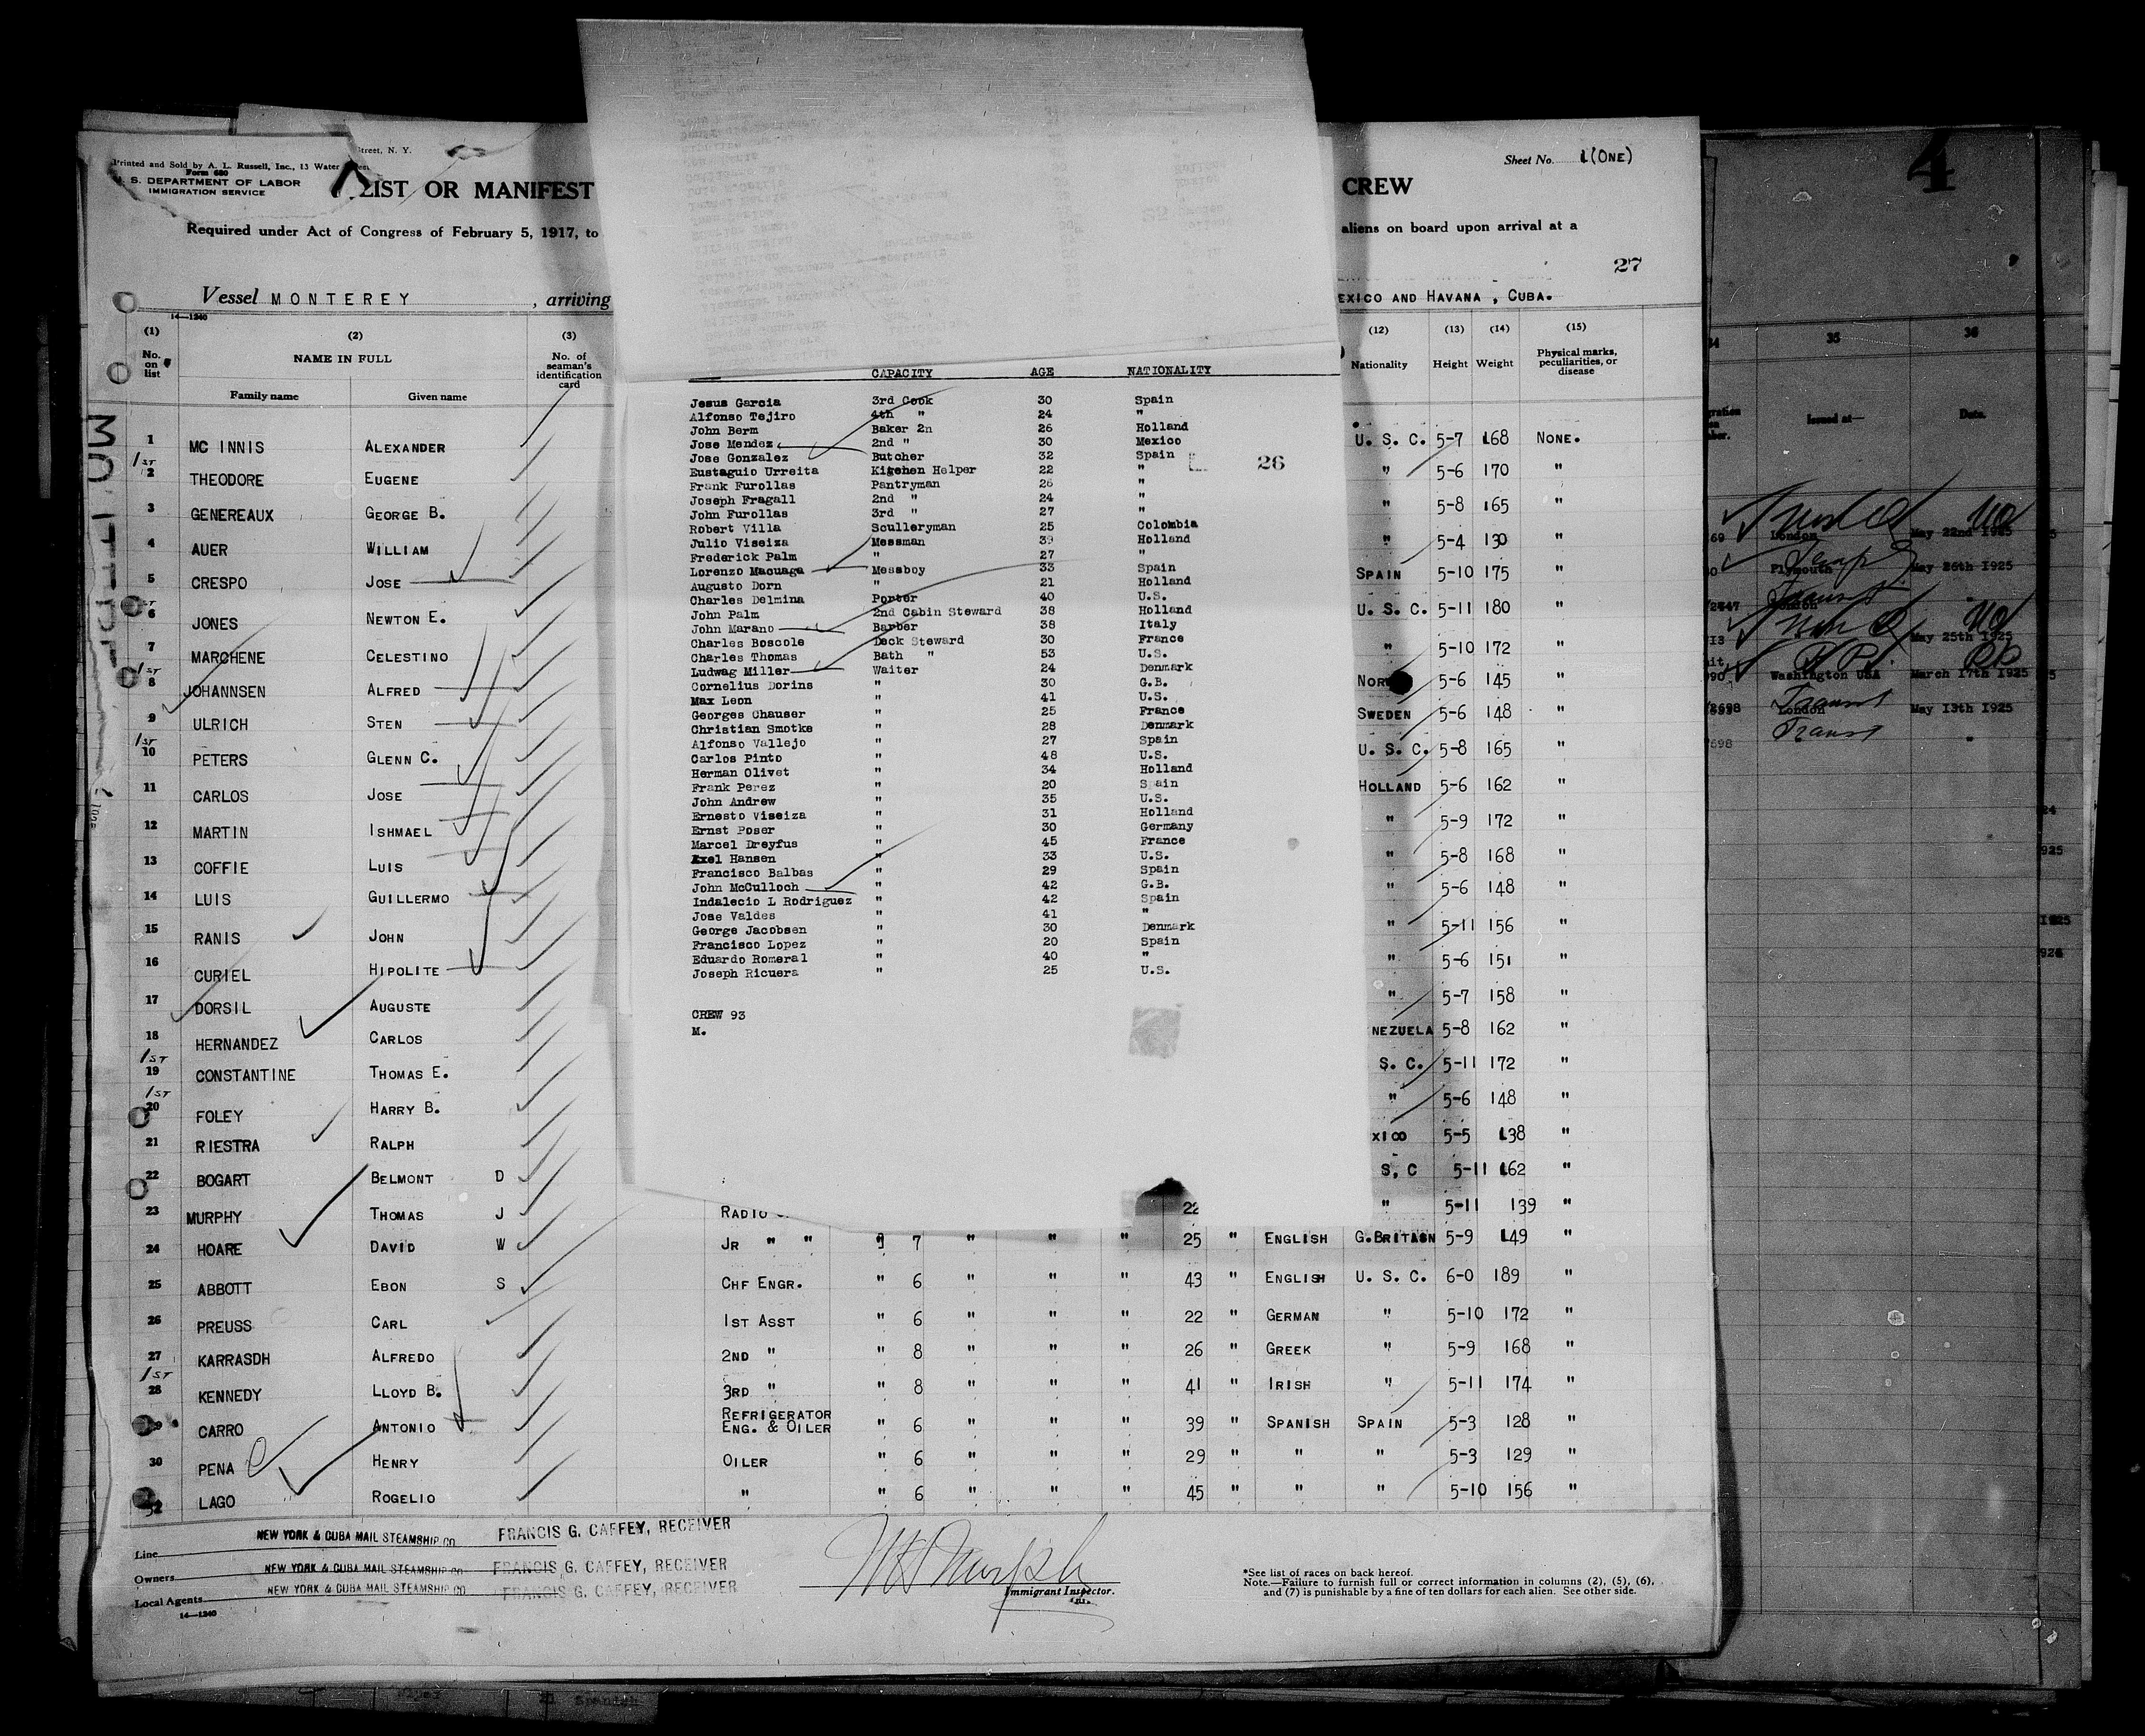 Street, N. Y.
Printed and Sold by A. L. Russell, Inc., 13 Water
Form 680
S. DEPARTMENT OF LABOR
IMMIGRATION SERVICE
LIST OR MANIFEST
CREW
Sheet No. 1 (ONE)
Required under Act of Congress of February 5, 1917, to
aliens on board upon arrival at a
27
Vessel MONTEREY , arriving
EXICO AND HAVANA , CUBA.
14—1240
(1) (2) (3)
No. on list
NAME IN FULL
No. of seaman's identification card
Family name Given name
(12) (13) (14) (15)
Nationality Height Weight Physical marks, peculiarities, or disease
1 MC INNIS ALEXANDER U. S. C. 5-7 168 NONE.
1st
2 THEODORE EUGENE " 5-6 170 "
3 GENEREAUX GEORGE B. " 5-8 165 "
4 AUER WILLIAM " 5-4 130 "
5 CRESPO JOSE SPAIN 5-10 175 "
6 JONES NEWTON E. U. S. C. 5-11 180 "
7 MARCHENE CELESTINO " 5-10 172 "
1st
8 JOHANNSEN ALFRED NOR 5-6 145 "
9 ULRICH STEN SWEDEN 5-6 148 "
1st
10 PETERS GLENN C. U. S. C. 5-8 165 "
11 CARLOS JOSE HOLLAND 5-6 162 "
12 MARTIN ISHMAEL " 5-9 172 "
13 COFFIE LUIS " 5-8 168 "
14 LUIS GUILLERMO " 5-6 148 "
15 RANIS JOHN " 5-11 156 "
16 CURIEL HIPOLITE " 5-6 151 "
17 DORSIL AUGUSTE " 5-7 158 "
18 HERNANDEZ CARLOS NEZUELA 5-8 162 "
1st
19 CONSTANTINE THOMAS E. S. C. 5-11 172 "
1st
20 FOLEY HARRY B. " 5-6 148 "
21 RIESTRA RALPH XICO 5-5 138 "
22 BOGART BELMONT D S, C 5-11 162 "
23 MURPHY THOMAS J RADIO 22 " 5-11 139 "
24 HOARE DAVID W JR " " " 7 " " " 25 " ENGLISH G.BRITAIN 5-9 149 "
25 ABBOTT EBON S CHF ENGR. " 6 " " " 43 " ENGLISH U. S. C. 6-0 189 "
26 PREUSS CARL 1ST ASST " 6 " " " 22 " GERMAN " 5-10 172 "
27 KARRASDH ALFREDO 2ND " " 8 " " " 26 " GREEK " 5-9 168 "
1st
28 KENNEDY LLOYD B. 3RD " " 8 " " " 41 " IRISH " 5-11 174 "
CARRO ANTONIO REFRIGERATOR ENG. & OILER " 6 " " " 39 " SPANISH SPAIN 5-3 128 "
30 PENA HENRY OILER " 6 " " " 29 " " " 5-3 129 "
LAGO ROGELIO " " 6 " " " 45 " " " 5-10 156 "
CAPACITY AGE NATIONALITY
Jesus Garcia 3rd Cook 30 Spain
Alfonso Tejiro 4th " 24 "
John Berm Baker 2n 26 Holland
Jose Mendez 2nd " 30 Mexico
Jose Gonzalez Butcher 32 Spain
26
Eustaguio Urreita Kitchen Helper 22 "
Frank Furollas Pantryman 26 "
Joseph Fragall 2nd " 24 "
John Furollas 3rd " 27 "
Robert Villa Sculleryman 25 Colombia
Julio Viseiza Messman 39 Holland
Frederick Palm " 27 "
Lorenzo Macuaga Messboy 33 Spain
Augusto Dorn " 21 Holland
Charles Delmina Porter 40 U.S.
John Palm 2nd Cabin Steward 38 Holland
John Marano Barber 38 Italy
Charles Boscole Deck Steward 30 France
Charles Thomas Bath " 53 U.S.
Ludwag Miller Waiter 24 Denmark
Cornelius Dorins " 30 G.B.
Max Leon " 41 U.S.
Georges Chauser " 25 France
Christian Smotke " 28 Denmark
Alfonso Vallejo " 27 Spain
Carlos Pinto " 48 U.S.
Herman Olivet " 34 Holland
Frank Perez " 20 Spain
John Andrew " 35 U.S.
Ernesto Viseiza " 31 Holland
Ernst Poser " 30 Germany
Marcel Dreyfus " 45 France
Axel Hansen " 33 U.S.
Francisco Balbas " 29 Spain
John McCulloch " 42 G.B.
Indalecio L Rodriguez " 42 Spain
Jose Valdes " 41 "
George Jacobsen " 30 Denmark
Francisco Lopez " 20 Spain
Eduardo Romeral " 40 "
Joseph Ricuera " 25 U.S.
CREW 93
M.
Line NEW YORK & CUBA MAIL STEAMSHIP CO. FRANCIS G. CAFFEY, RECEIVER
Owners NEW YORK & CUBA MAIL STEAMSHIP CO. FRANCIS G. CAFFEY, RECEIVER
Local Agents NEW YORK & CUBA MAIL STEAMSHIP CO. FRANCIS G. CAFFEY, RECEIVER
14—1240
Immigrant Inspector.
*See list of races on back hereof.
Note.—Failure to furnish full or correct information in columns (2), (5), (6),
and (7) is punishable by a fine of ten dollars for each alien. See other side.
4
34 35 36
Issued at— Date.
London May 22nd 1925
Plymouth May 26th 1925
Transit
London "
May 25th 1925
Washington USA March 17th 1925
Transit
London May 13th 1925
Transit "